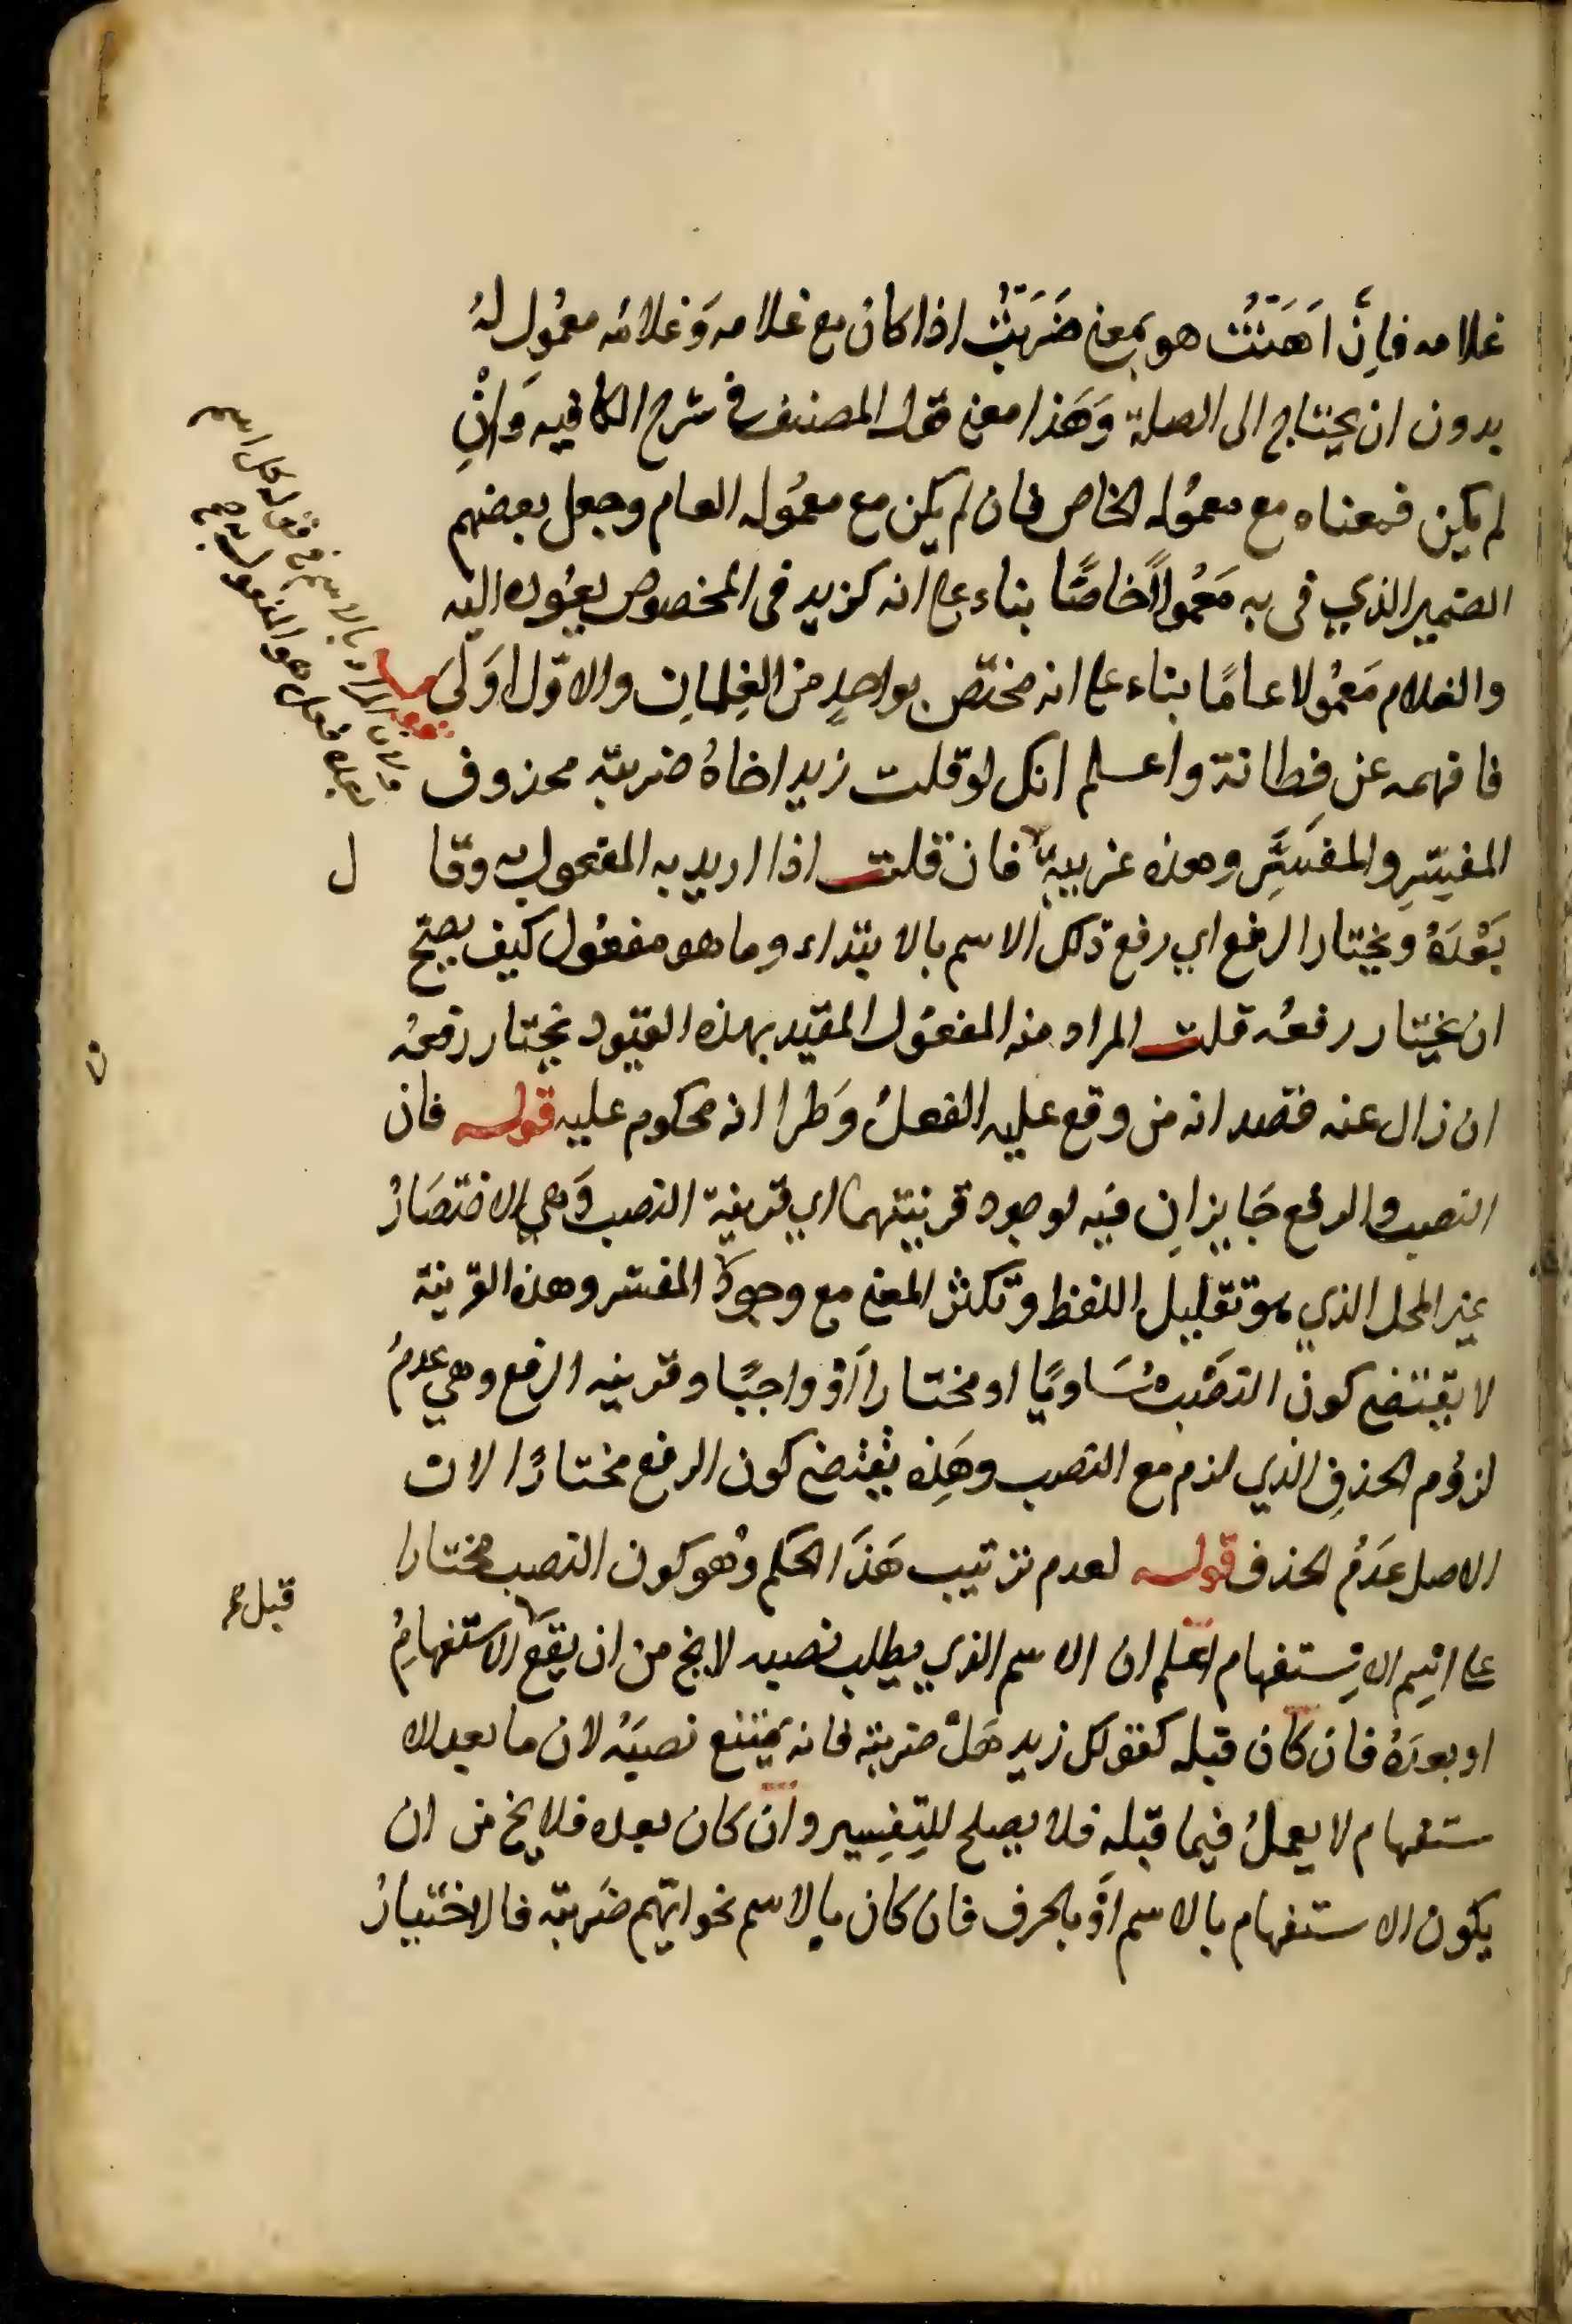 غلامه فاِنّ اَهَنْتُ هو بمعنى ضَرَبْتُ اذا كان مع غلامه وَغلامُه معمُول لهُ
بدون ان يحتاج الى الصلة وَهَذا معنى قول المصنف فى شرح الكافيه وَاِنْ
لم يكن فمعناه مع معمُوله الخاص فان لم يكن مع معمُوله العام وجعل بعضهم
الضمير الذي فى به مَعْمُولاً خاصًّا بناء على انه كزيد فى المخصوص يعُوده اليه
والغلام مَعمُولا عامًا بناء على انه مختص بواحدٍ من الغِلمانِ والاوّل اَولىَ
فافهمه عن فِطانة واعلم انك لو قلت زيد اخاهُ ضربته محذوف
المفسِّرِ والمفسَّرِ وهذه غريبةٌ فان قلت اذا اريد به المفعول به وقا ل
بَعْدَهُ ويختار الرفع اي رفع ذلك الاسم بالابتداء وما هو مفعُول كيف يصحّ
ان يختار رفعُه قلت المراد منه المفعُول المقيد بهذه القيود يختار رفعُه
ان زال عنه قصد انه من وقع عليه الفعلُ وَطرا انه محكوم عليه قوله فان
النصب والرفع جَايزانِ فيه لوجود قرينتهما اي قرينة النصب وَهي الاختصَارُ
غير المحل الذي هو تقليل اللفظ وتكثر المعنى مع وجود المفسر وهذه القرينة
لا يقتضى كون النصْب مُسَاويًا او مختارا اَوْ واجبًا وقرينه الرفع وهي عدمُ
لزوُم الحذفِ الذي لزم مع النصب وهَذِه يقتضى كون الرفع مختارًا لان
الاصل عَدَمُ الحذف قوله لعدم ترتيب هَذَا الحكم وُهو كون النصب مختارا
على اسِم الاِستفهام اعلم ان الاسم الذي يطلب نصبه لا يخ من ان يقعَ الاستفهامُ
قبل
او بعدَهُ فان كان قبله كقولك زيد هَلْ ضربته فانه يمتنع نصبَهُ لان ما بعد الا
ستفهام لا يعملُ فيما قبله فلا يصلح للتِفسِير وان كان بعده فلا يخ من ان
يكون الاستفهام بالاسم اَوْ بالحرف فان كان بالاسم نحو ايّهم ضَربته فالاختيارُ